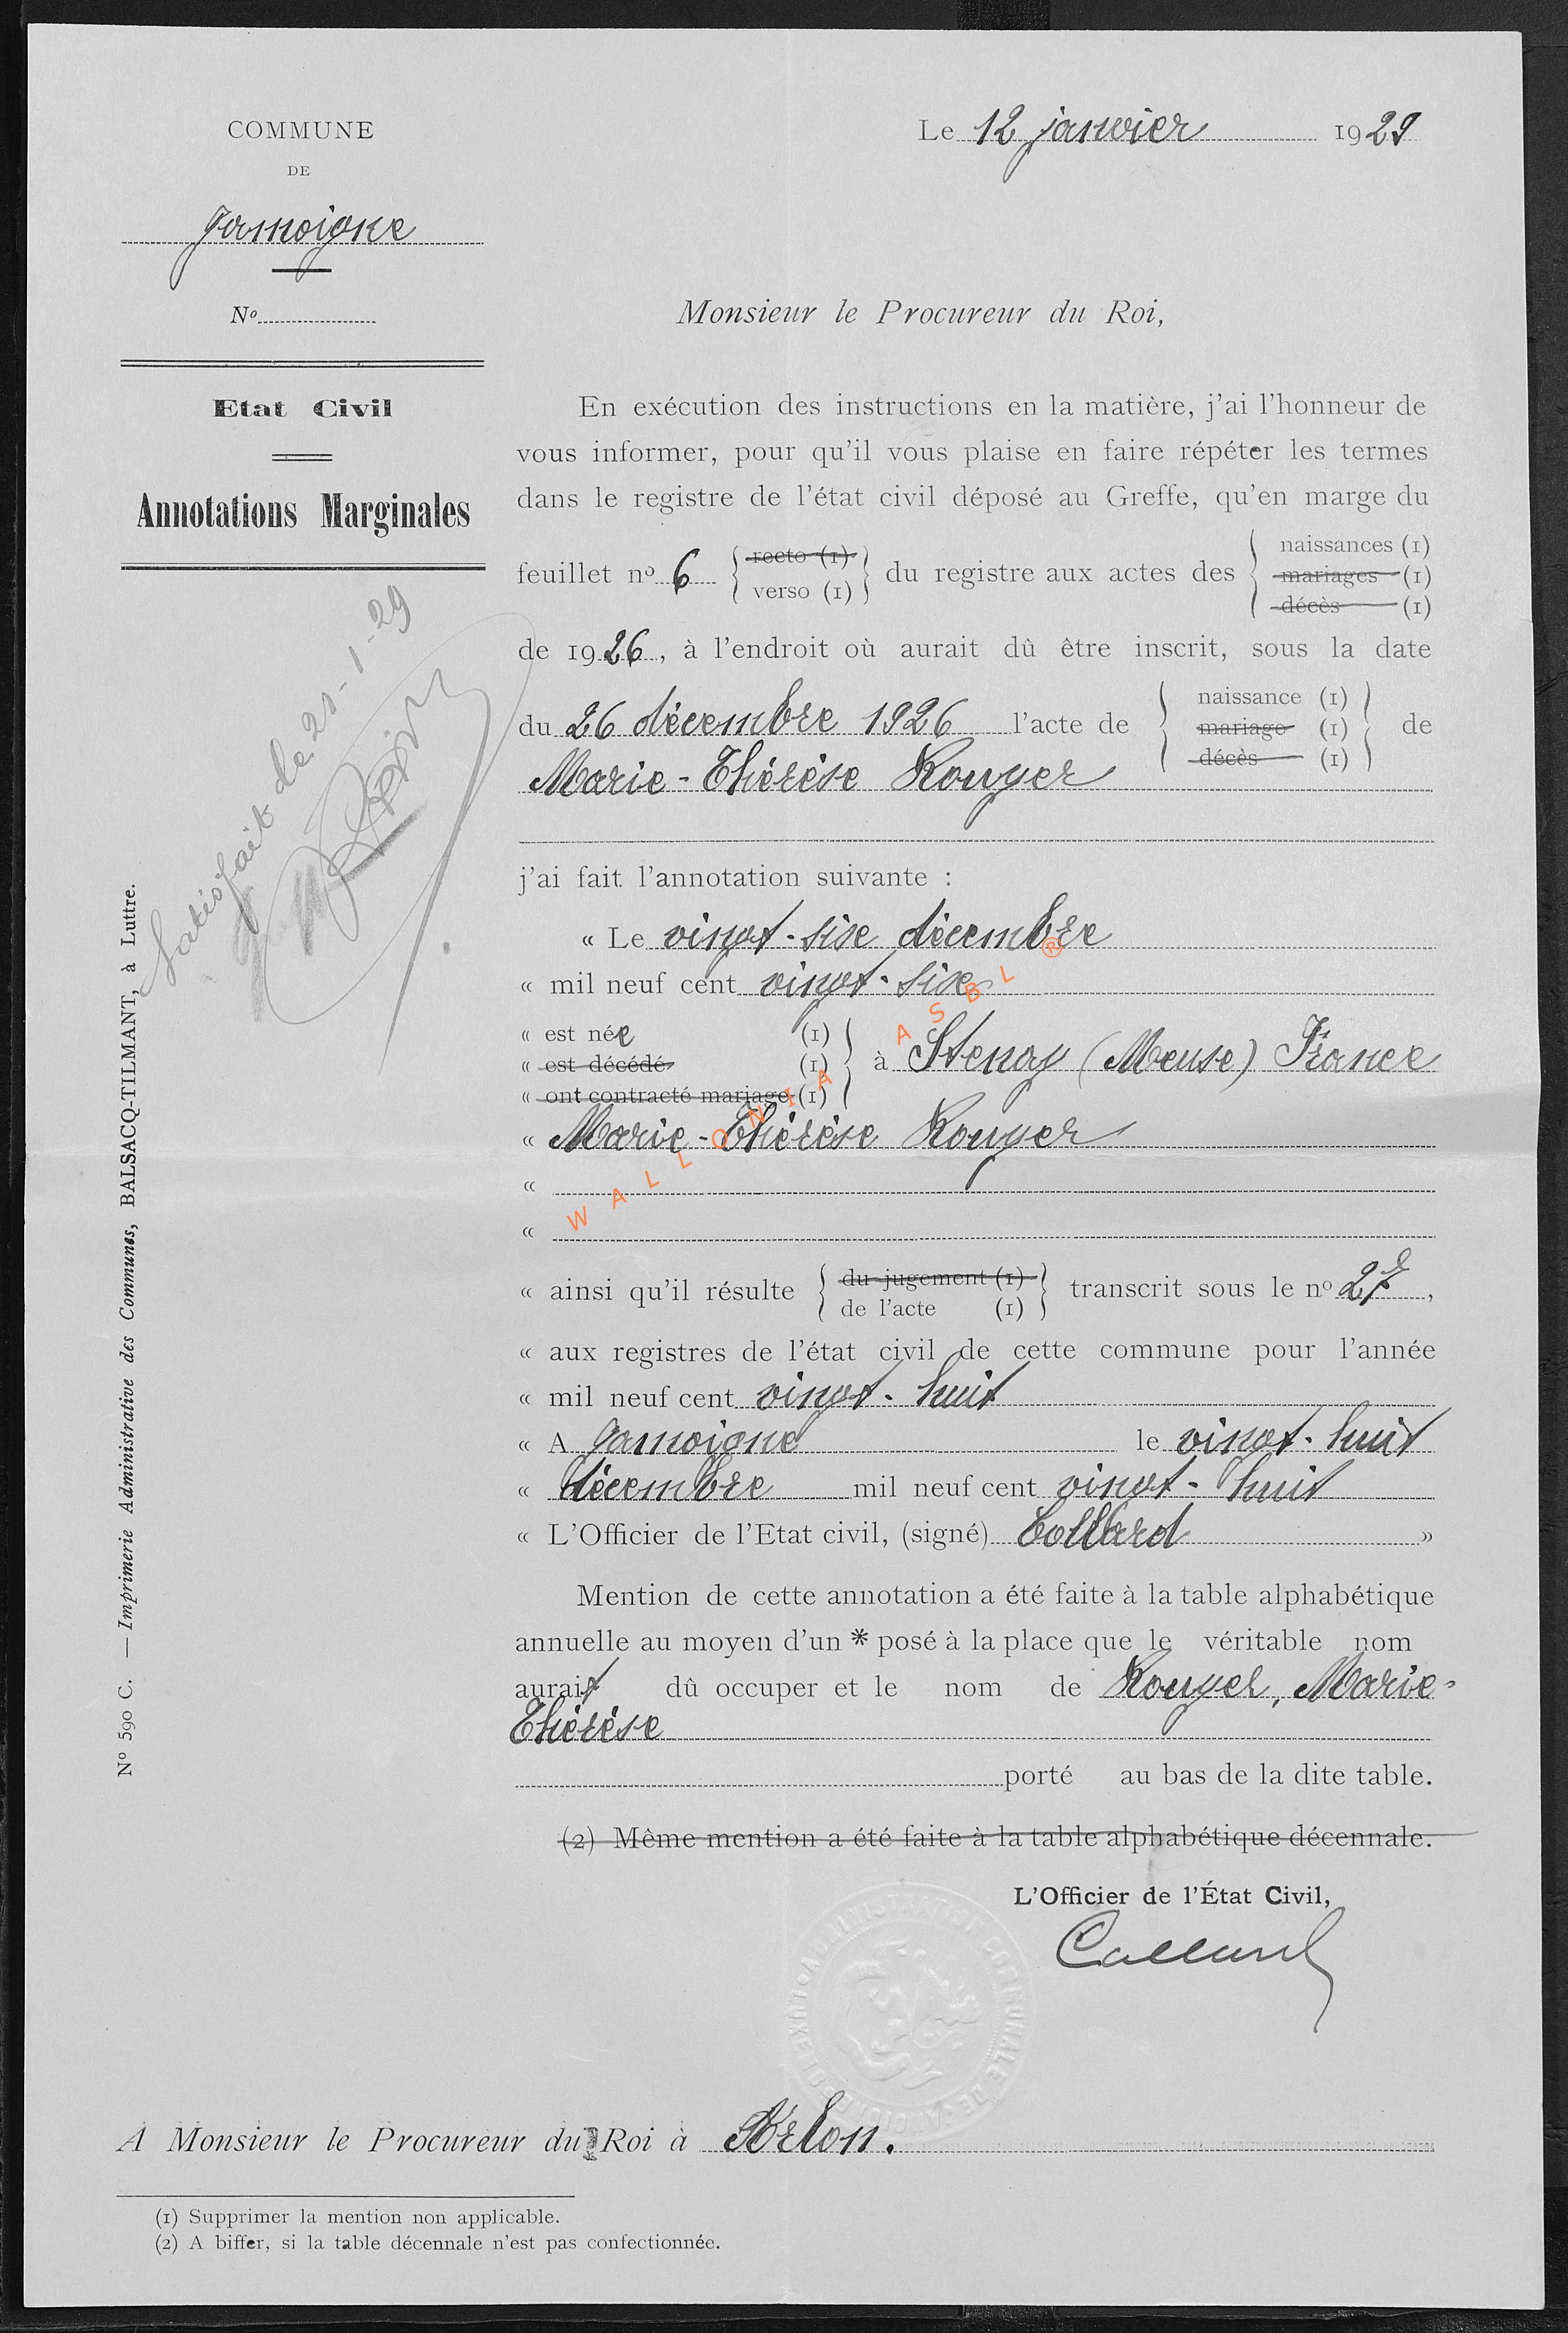 COMMUNE
DE
Jamoigne
No
Etat Civil
Annotations Marginales
Satisfait le 21-1-29
No 590 C. — Imprimerie Administrative des Communes, BALSACQ-TILMANT, à Luttre.
Le 12 janvier 1929
Monsieur le Procureur du Roi,
En exécution des instructions en la matière, j'ai l'honneur de
vous informer, pour qu'il vous plaise en faire répéter les termes
dans le registre de l'état civil déposé au Greffe, qu'en marge du
feuillet no 6 { recto (1) verso (1) } du registre aux actes des { naissances (1)
mariages (1)
décès (1)
de 1926, à l'endroit où aurait dû être inscrit, sous la date
du 26 décembre 1926 l'acte de { naissance (1) mariage (1) décès (1) } de
Marie-Thérèse Rouyer
j'ai fait l'annotation suivante :
« Le vingt-six décembre
« mil neuf cent vingt-six
« est née (1)
« est décédé (1) } à Stenay (Meuse) France
« ont contracté mariage (1)
« Marie-Thérèse Rouyer
«
«
« ainsi qu'il résulte { du jugement (1) de l'acte (1) } transcrit sous le no 27,
« aux registres de l'état civil de cette commune pour l'année
« mil neuf cent vingt-huit
« A Jamoigne le vingt-huit
« décembre mil neuf cent vingt-huit
« L'Officier de l'Etat civil, (signé) Collard »
Mention de cette annotation a été faite à la table alphabétique
annuelle au moyen d'un * posé à la place que le véritable nom
aurait dû occuper et le nom de Rouyer, Marie-
Thérèse
porté au bas de la dite table.
(2) Même mention a été faite à la table alphabétique décennale.
L'Officier de l'État Civil,
Collard
A Monsieur le Procureur du Roi à Arlon.
(1) Supprimer la mention non applicable.
(2) A biffer, si la table décennale n'est pas confectionnée.
WALLONIA ASBL ®